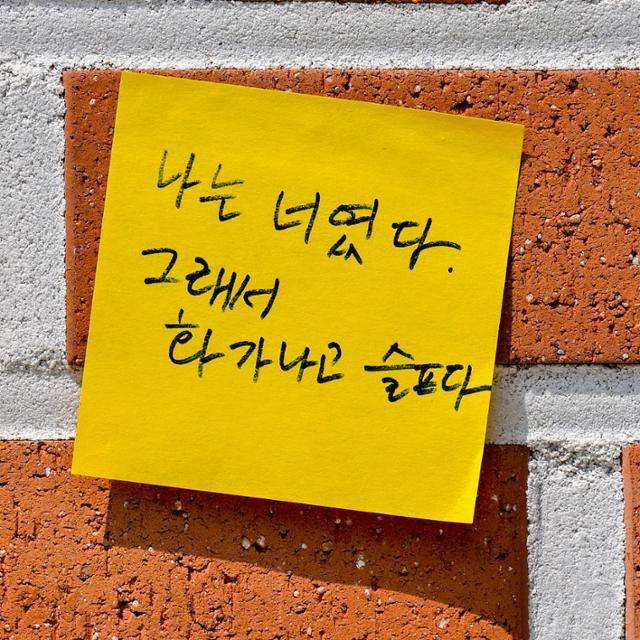 나는 너였다.
그래서
화가나고 슬프다